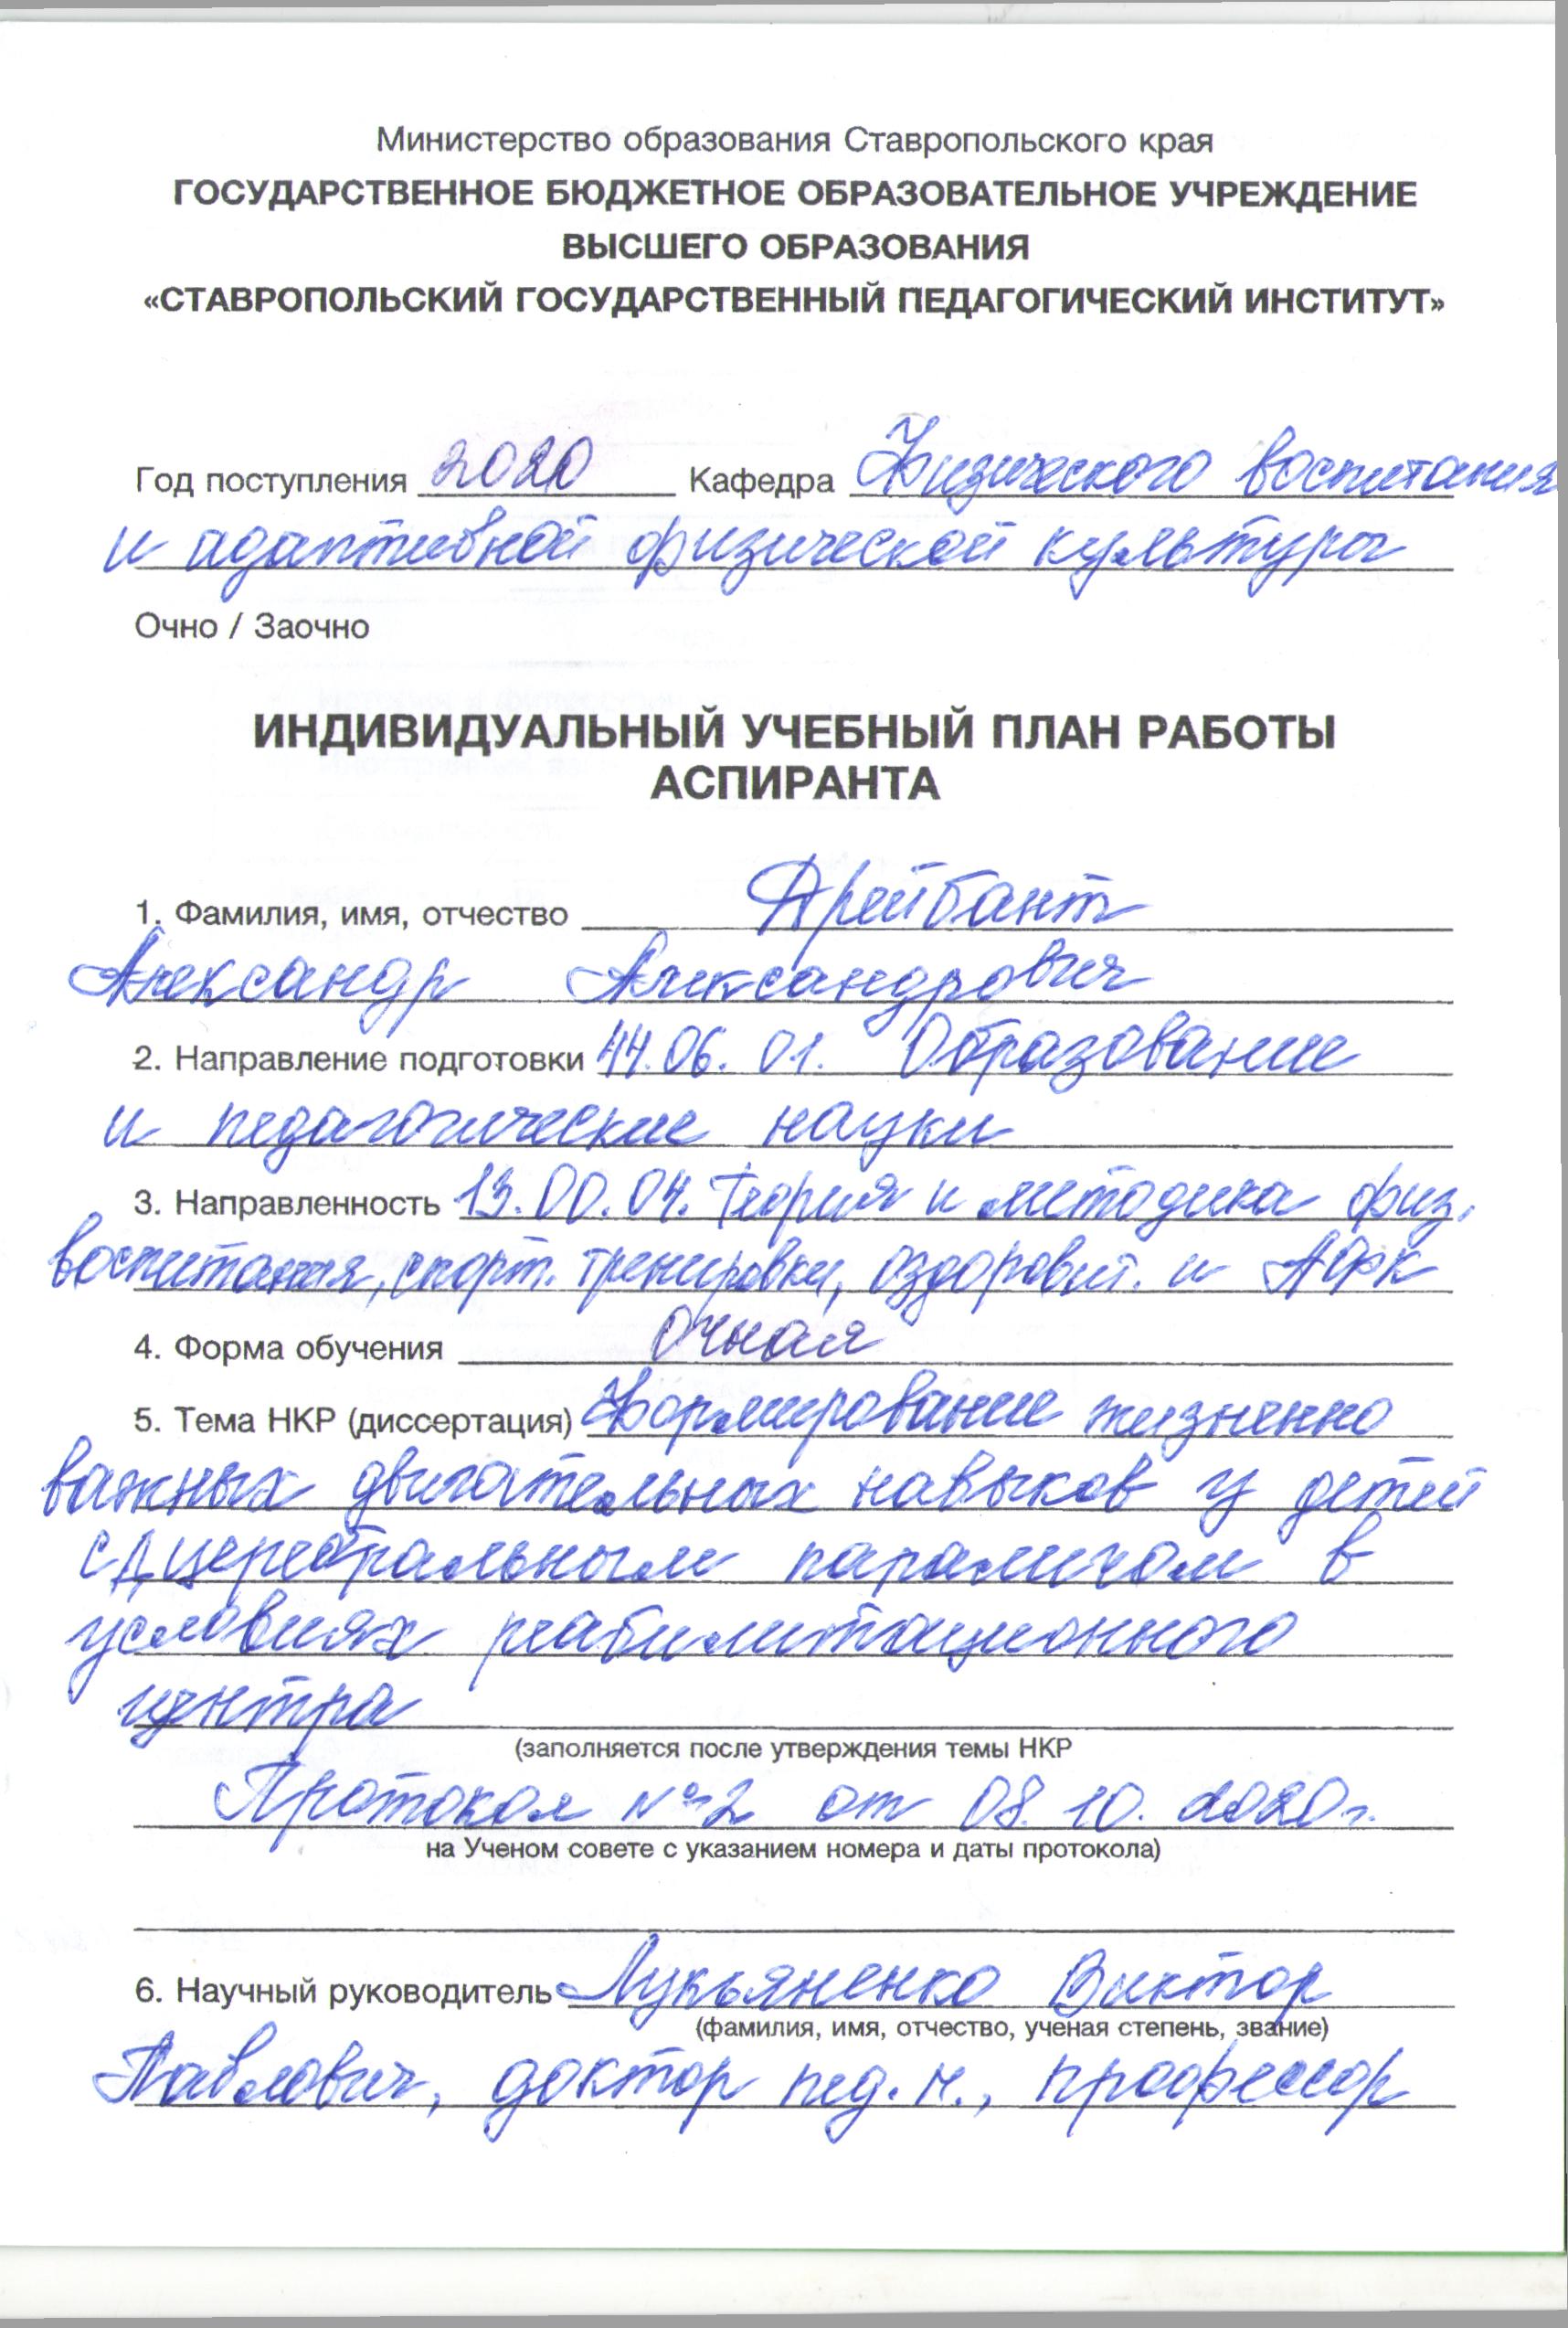 Министерство образования Ставропольского края
ГОСУДАРСТВЕННОЕ БЮДЖЕТНОЕ ОБРАЗОВАТЕЛЬНОЕ УЧРЕЖДЕНИЕ
ВЫСШЕГО ОБРАЗОВАНИЯ
«СТАВРОПОЛЬСКИЙ ГОСУДАРСТВЕННЫЙ ПЕДАГОГИЧЕСКИЙ ИНСТИТУТ»
Год поступления 2020 Кафедра Физического воспитания
и адаптивной физической культуры
Очно / Заочно
ИНДИВИДУАЛЬНЫЙ УЧЕБНЫЙ ПЛАН РАБОТЫ
АСПИРАНТА
1. Фамилия, имя, отчество Дрейбант
Александр Александрович
2. Направление подготовки 44.06.01. Образование
и педагогические науки
3. Направленность 13.00.04. Теория и методика физ.
воспитания, спорт. тренировки, оздоровит. и АФК
4. Форма обучения очная
5. Тема НКР (диссертация) Формирование жизненно
важных двигательных навыков у детей
с ДЦеребральным параличом в
условиях реабилитационного
центра
(заполняется после утверждения темы НКР
Протокол №2 от 08.10.2020г.
на Ученом совете с указанием номера и даты протокола)
6. Научный руководитель Лукьяненко Виктор
(фамилия, имя, отчество, ученая степень, звание)
Павлович, доктор пед. н., профессор